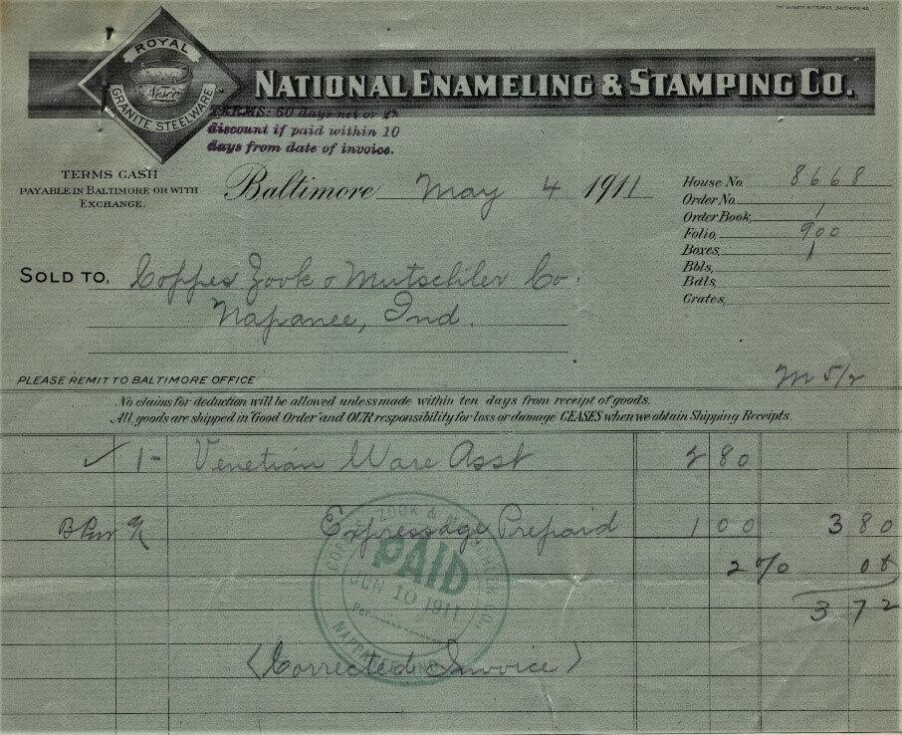 ROYAL
Nesco
GRANITE STEELWARE
NATIONAL ENAMELING & STAMPING CO.
TERMS: 60 days net or 2%
discount if paid within 10
days from date of invoice.
TERMS CASH
PAYABLE IN BALTIMORE OR WITH
EXCHANGE.
Baltimore May 4 1911
House No. 8668
Order No.
Order Book, 1
Folio, 900
Boxes, 1
Bbls,
Bdls,
Crates,
SOLD TO, Coppes Zook & Mutschler Co.
Napanee, Ind.
PLEASE REMIT TO BALTIMORE OFFICE
M 5/2
No claims for deduction will be allowed unless made within ten days from receipt of goods.
All goods are shipped in "Good Order" and OUR responsibility for loss or damage CEASES when we obtain Shipping Receipts.
✓ 1- Venetian Ware Asst 2 80
Expressage Prepaid 1 00 3 80
2% 08
3 72
PAID
JUN 10 1911
Per
(Corrected Invoice)